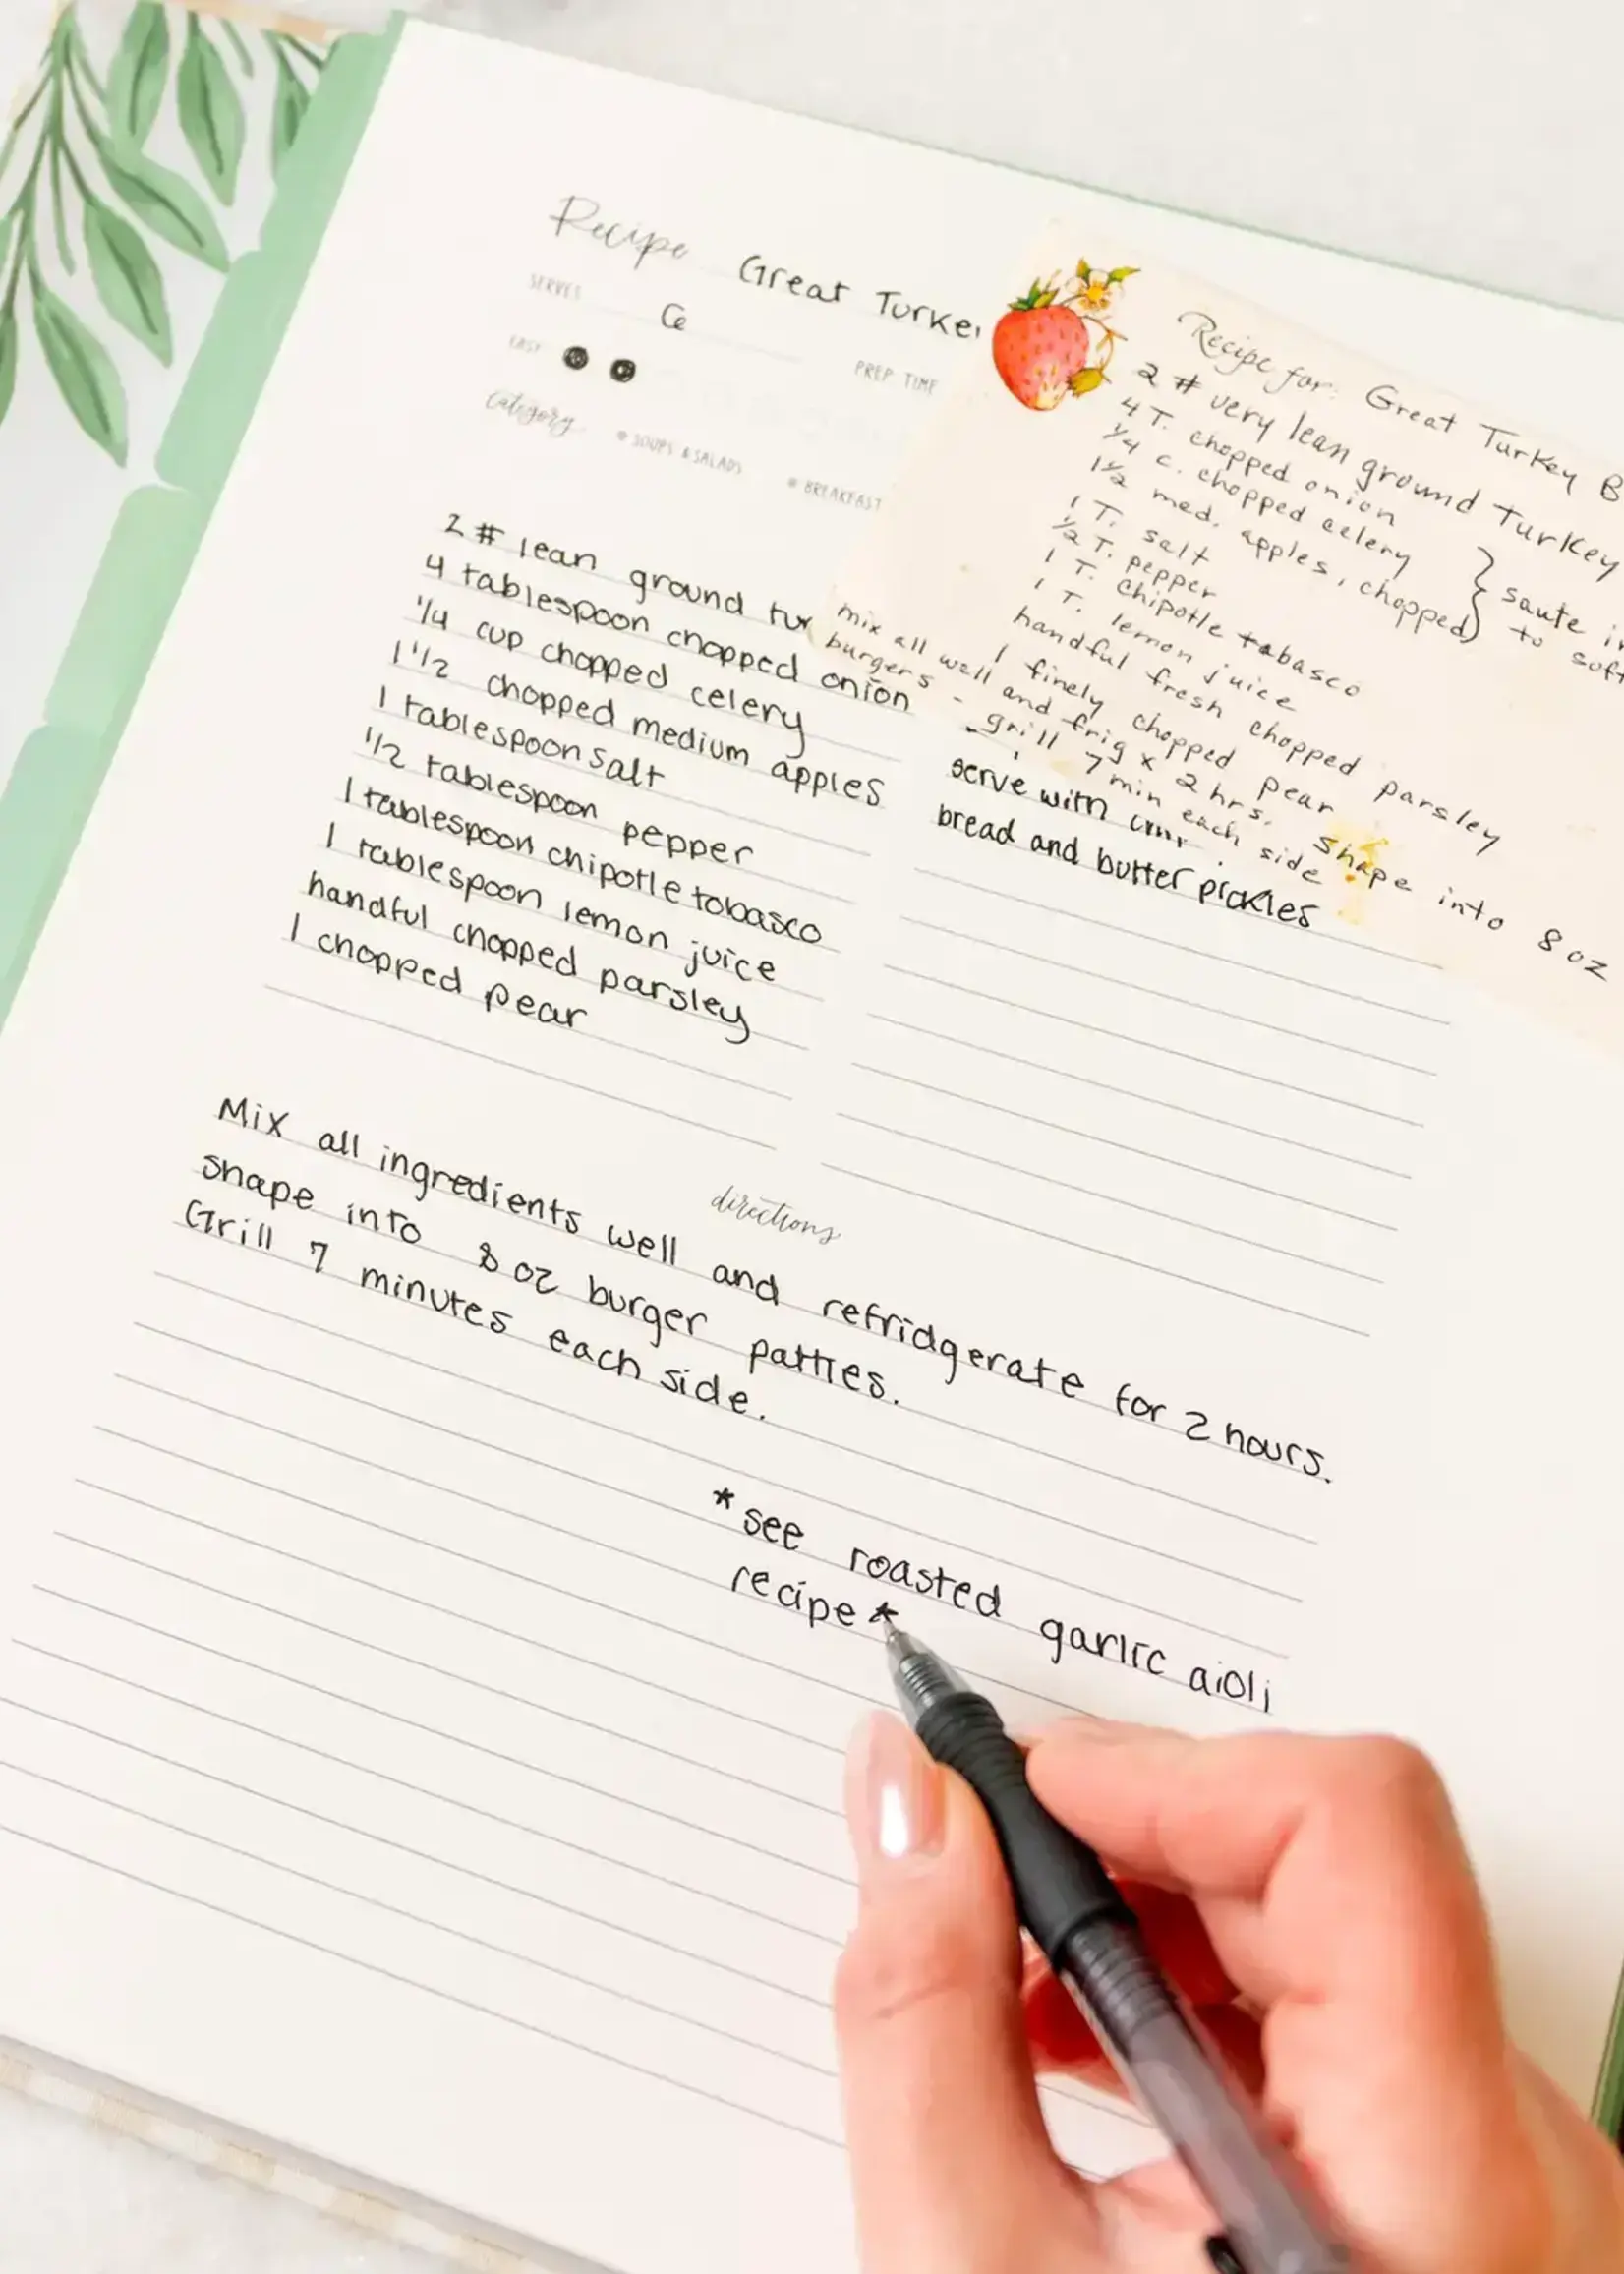 Recipe Great Turke
SERVES 6
EASY
PREP TIME
category
SOUPS & SALADS
BREAKFAST
2 # lean ground tur
4 tablespoon chopped onion
1/4 cup chopped celery
1 1/2 chopped medium apples
1 tablespoon salt
1/2 tablespoon pepper
1 tablespoon chipotle tobasco
1 tablespoon lemon juice
handful chopped parsley
1 chopped pear
serve with
bread and butter pickles
directions
Mix all ingredients well and refridgerate for 2 hours.
shape into 8 oz burger patties.
Grill 7 minutes each side.
*see roasted garlic aioli
recipe*
Recipe for: Great Turkey B
2 # very lean ground turkey
4 T. chopped onion
1/4 c. chopped celery
1 1/2 med. apples, chopped
} saute i
to soft
1 T. salt
1/2 T. pepper
1 T. chipotle tabasco
1 T. lemon juice
handful fresh chopped parsley
1 finely chopped pear
mix all well and frig x 2 hrs. shape into 8 oz
burgers - grill 7 min each side